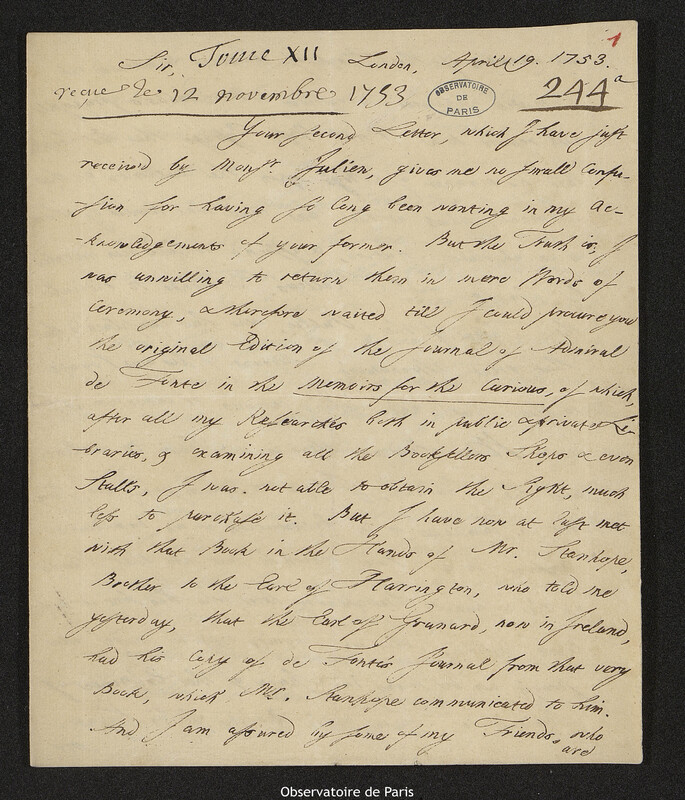 1
Sir, Tome XII London, April 19. 1753.
reçue le 12 novembre 1753
OBSERVATOIRE DE PARIS
244a
Your second Letter, which I have just
received by Monsr. Julien, gives me no small Confu-
-sion for having so long been wanting in my Ac-
-knowledgements of your former. But the Truth is, I
was unwilling to return them in mere Words of
Ceremony, & therefore waited till I could procure you
the original Edition of the Journal of Admiral
de Fonte in the Memoirs for the Curious, of which,
after all my Researches both in public & private Li-
braries, & examining all the Booksellers Shops & even
Stalls, I was not able to obtain the Sight, much
less to purchase it. But I have now at last met
with that Book in the Hands of Mr. Stanhope,
Brother to the Earl of Harrington, who told me
yesterday, that the Earl of Granard, now in Ireland,
had his Copy of de Fonte's Journal from that very
Book, which Mr. Stanhope communicated to him.
And I am assured by some of my Friends, who
are
Observatoire de Paris